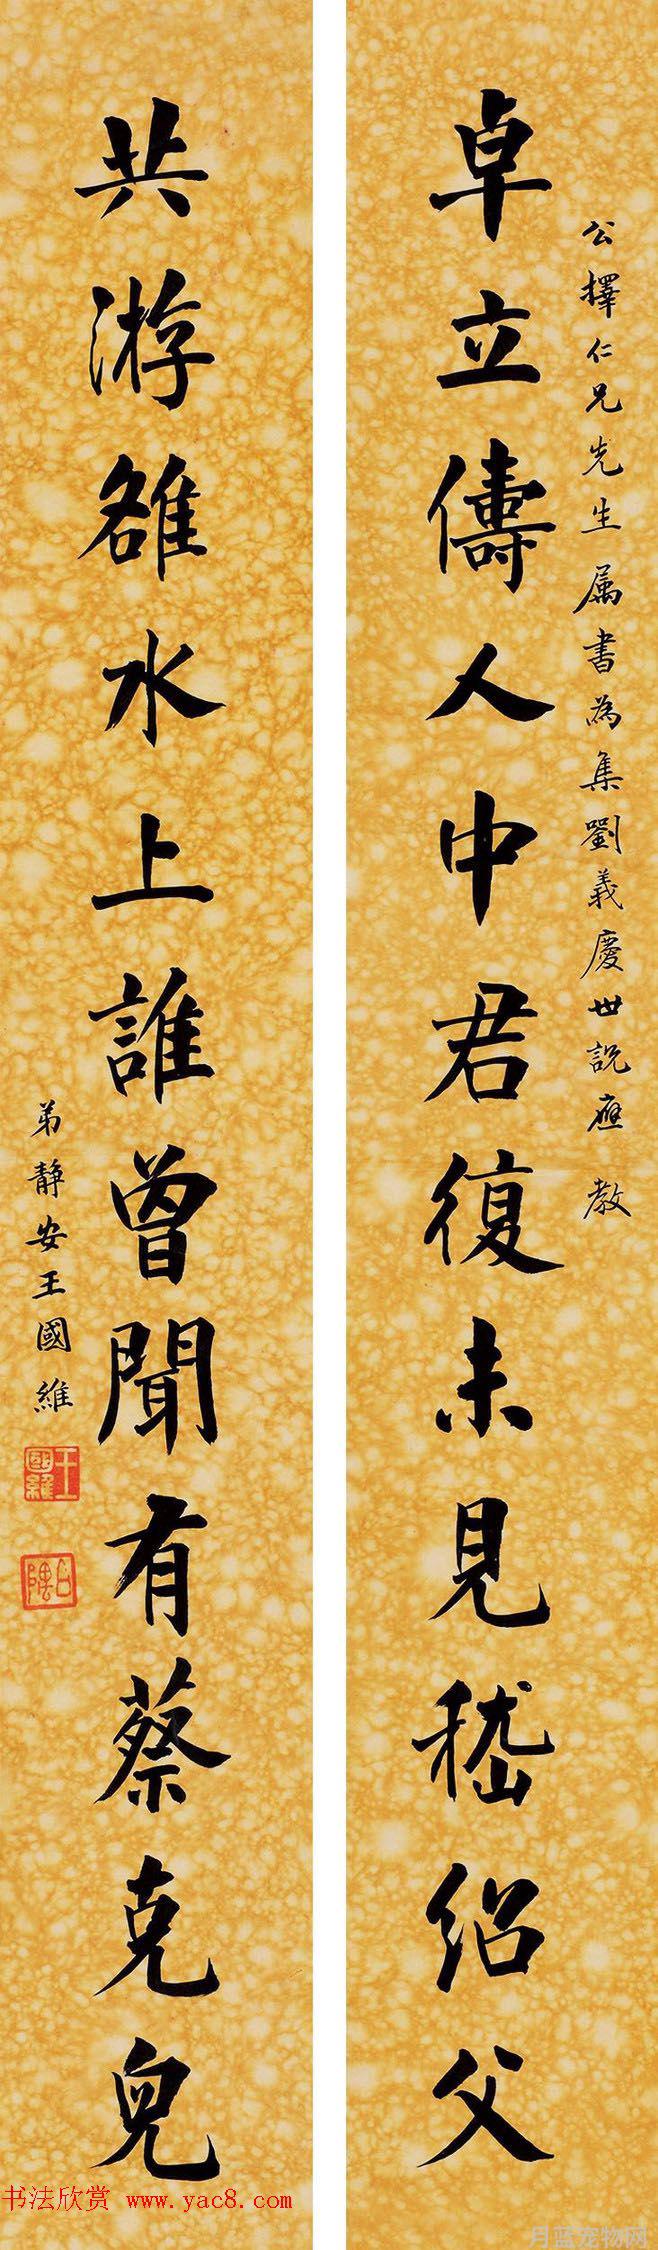 公擇仁兄先生属書為集劉義慶世説應教
卓立儔人中君復未見嵇紹父
共游雒水上誰曾聞有蔡克兒
弟靜安王國維
王國維
書法欣赏 www.yac8.com
月蓝宠物网